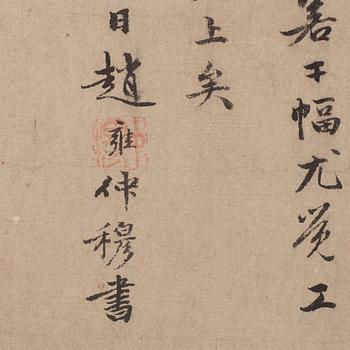 若干幅尤覺工
上矣
日趙雍仲穆書